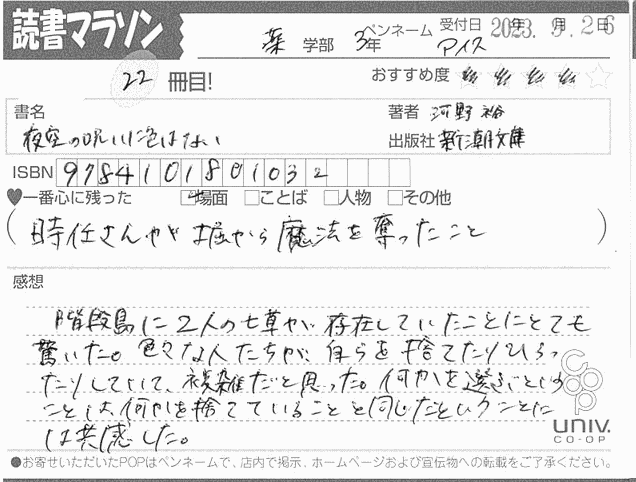 読書マラソン
薬 学部 3年 ペンネーム アイス 受付日 2023年 5月26日
22 冊目! おすすめ度
書名 夜空の呪いに色はない
著者 河野 裕
出版社 新潮文庫
ISBN 9784101801032
♥一番心に残った 場面 ことば 人物 その他
(時任さんが堀から魔法を奪ったこと)
感想
階段島に2人の七草が存在していたことにとても
驚いた。色々な人たちが、自らを捨てたりひろっ
たりしていて、複雑だと思った。何かを選ぶという
ことは、何かを捨てていることと同じだということに
は共感した。
coop
UNIV.
CO-OP
●お寄せいただいたPOPはペンネームで、店内で掲示、ホームページおよび宣伝物への転載をご了承ください。